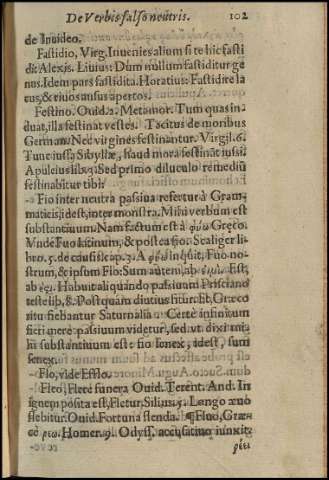 De Verbis falso neutris. 102
de Inuideo.
Fastidio, Virg. Inuenies alium si te hic fasti
dit Alexis. Liuius: Dum nullum fastiditur ge
nus. Idem pars fastidita. Horatius: Fastidire la
cus, & riuos ausus apertos.
Festino. Ouid. 2. Metamor. Tum quas in-
duat, illa festinat vestes. Tacitus de moribus
German. Nec virgines festinantur. Virgil. 6.
Tunc iussa Sibyllæ, haud mora festinãt iussi.
Apuleius lib. Sed primo diluculo remediũ
festinabitur tibi.
Fio inter neutra passiua refertur à Gram-
maticis, idest, inter monstra. Mihi verbum est
substantiuum. Nam factum est à φύω Græco.
Vnde Fuo Latinum, & postea fio. Scaliger li
bro. 5. de causis cap. 3. A φύω inquit, Fuo no-
strum, & ipsum Fio: Sum autem, ab Est,
ab Habuit aliquando passiuum Prisciano
teste lib. 8. Postquam diutius fitur. Et, Græco
ritu fiebantur Saturnalia Certè infinitum
fieri mere passiuum videtur, sed vt dixi mi-
hi substantiuum est: fio senex, idest, sum
senex.
Flo, vide Efflo.
Fleo, Flere funera Ouid. Terent. And. In
ignem posita est, Fletur. Silius Longo æuo
flebitur. Ouid. Fortuna flenda. ¶ Fluo, Græ-
cè ρεω. Homer. 9. Odyss. accusatiuo iunxit:
ῥέει